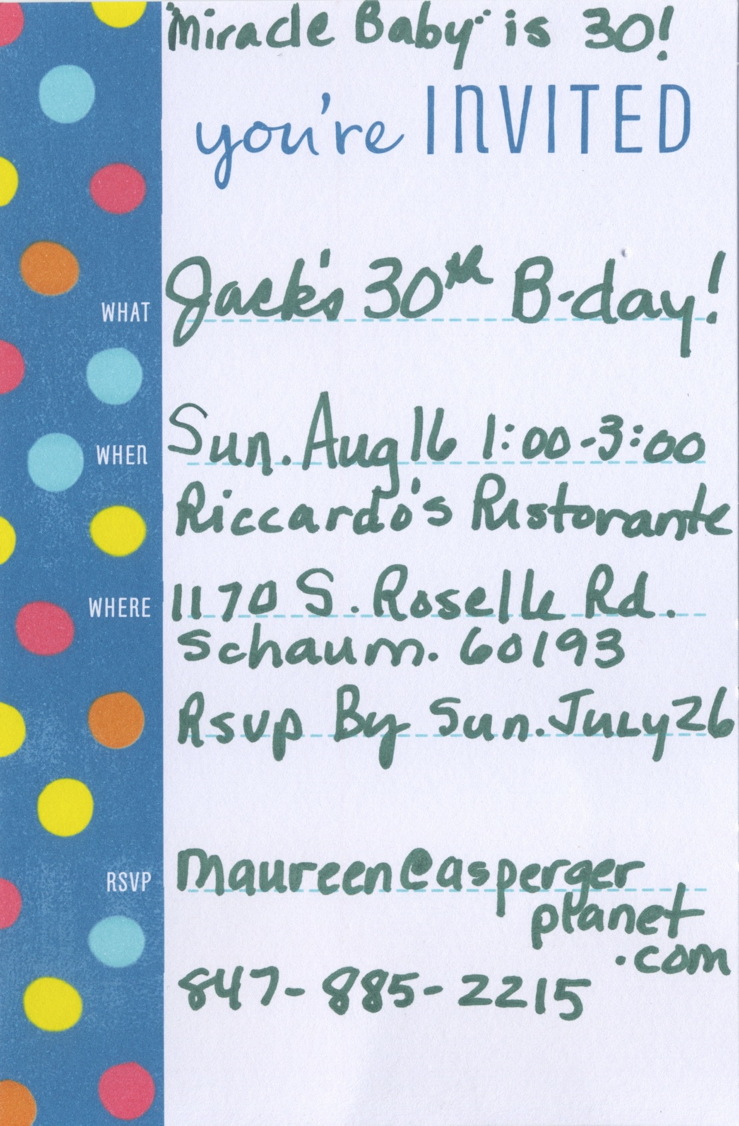 "Miracle Baby" is 30!
you're INVITED
WHAT Jack's 30th B-day!
WHEN Sun. Aug 16 1:00-3:00
Riccardo's Ristorante
WHERE 1170 S. Roselle Rd.
Schaum. 60193
Rsvp By Sun. July 26
RSVP maureen@asperger
planet
.com
847-885-2215